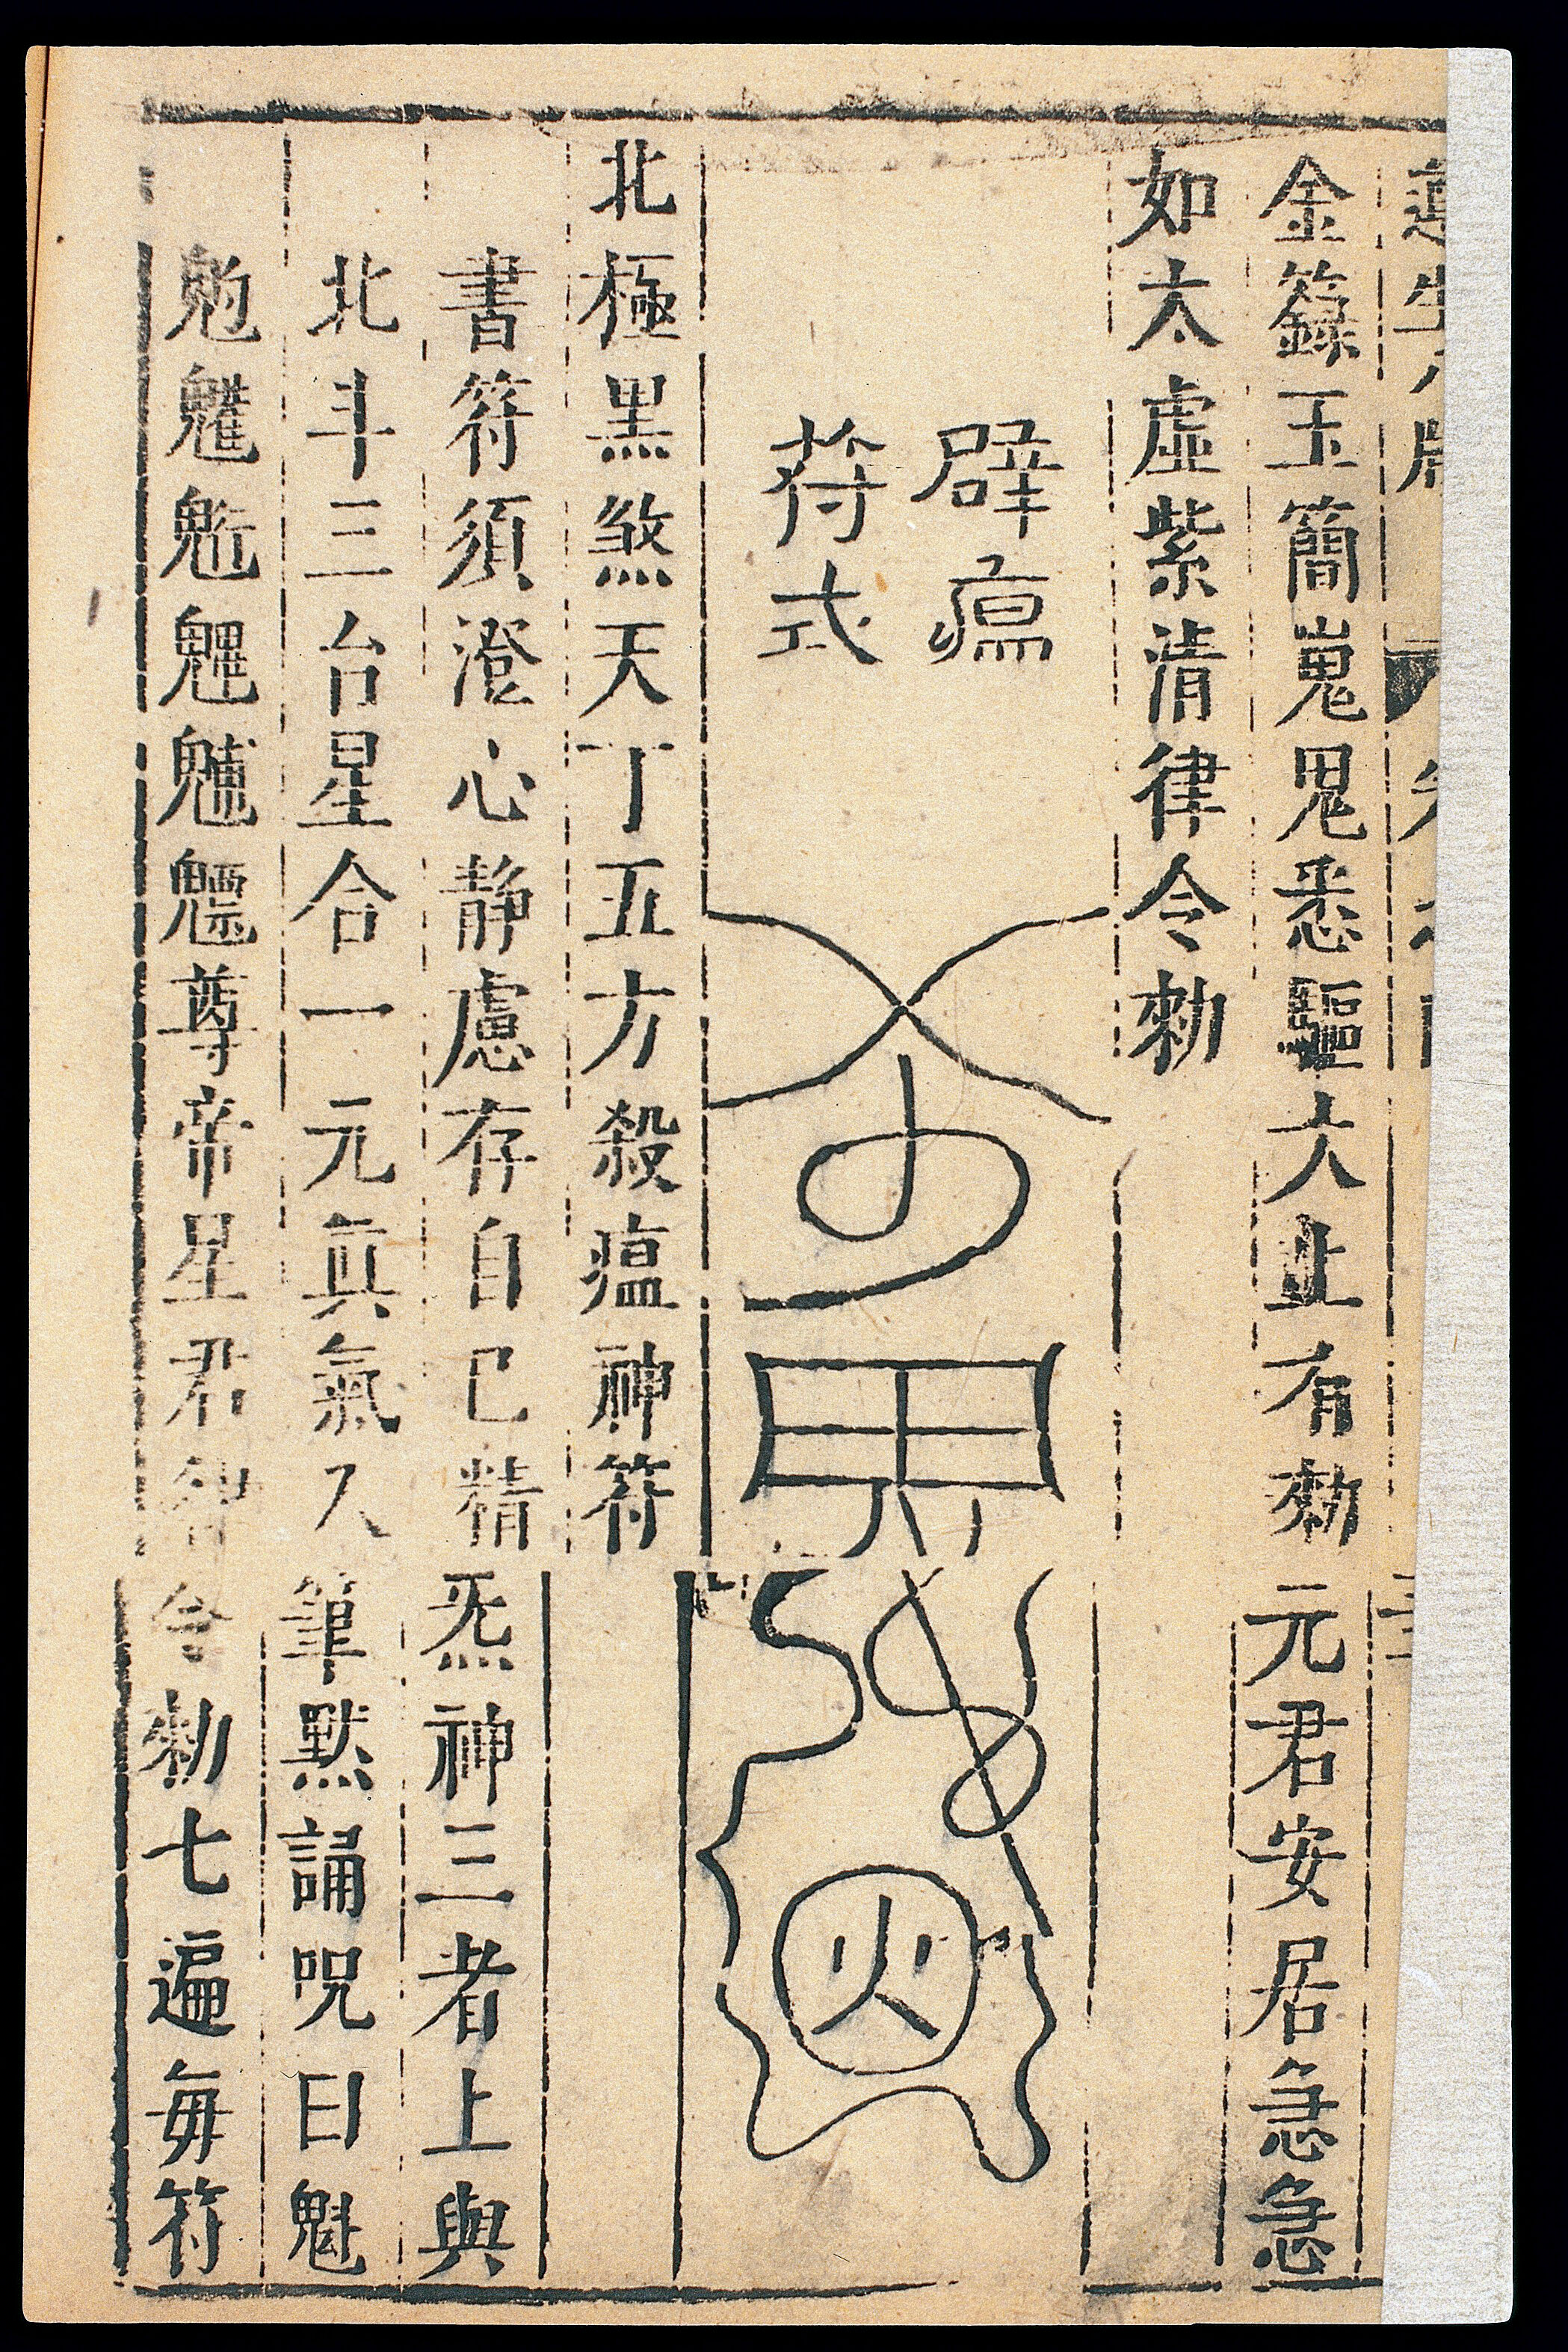 金籙玉簡嵬鬼悉驅大业有効元君安居急急
如太虛紫清律令勑
辟瘟
符式
火
北極黑煞天丁五方殺瘟神符
書符須澄心静慮存自己精炁神三者上與
北斗三台星合一元真氣入筆默誦呪曰魁
魀魋魁尊帝星君律令勑七遍每符